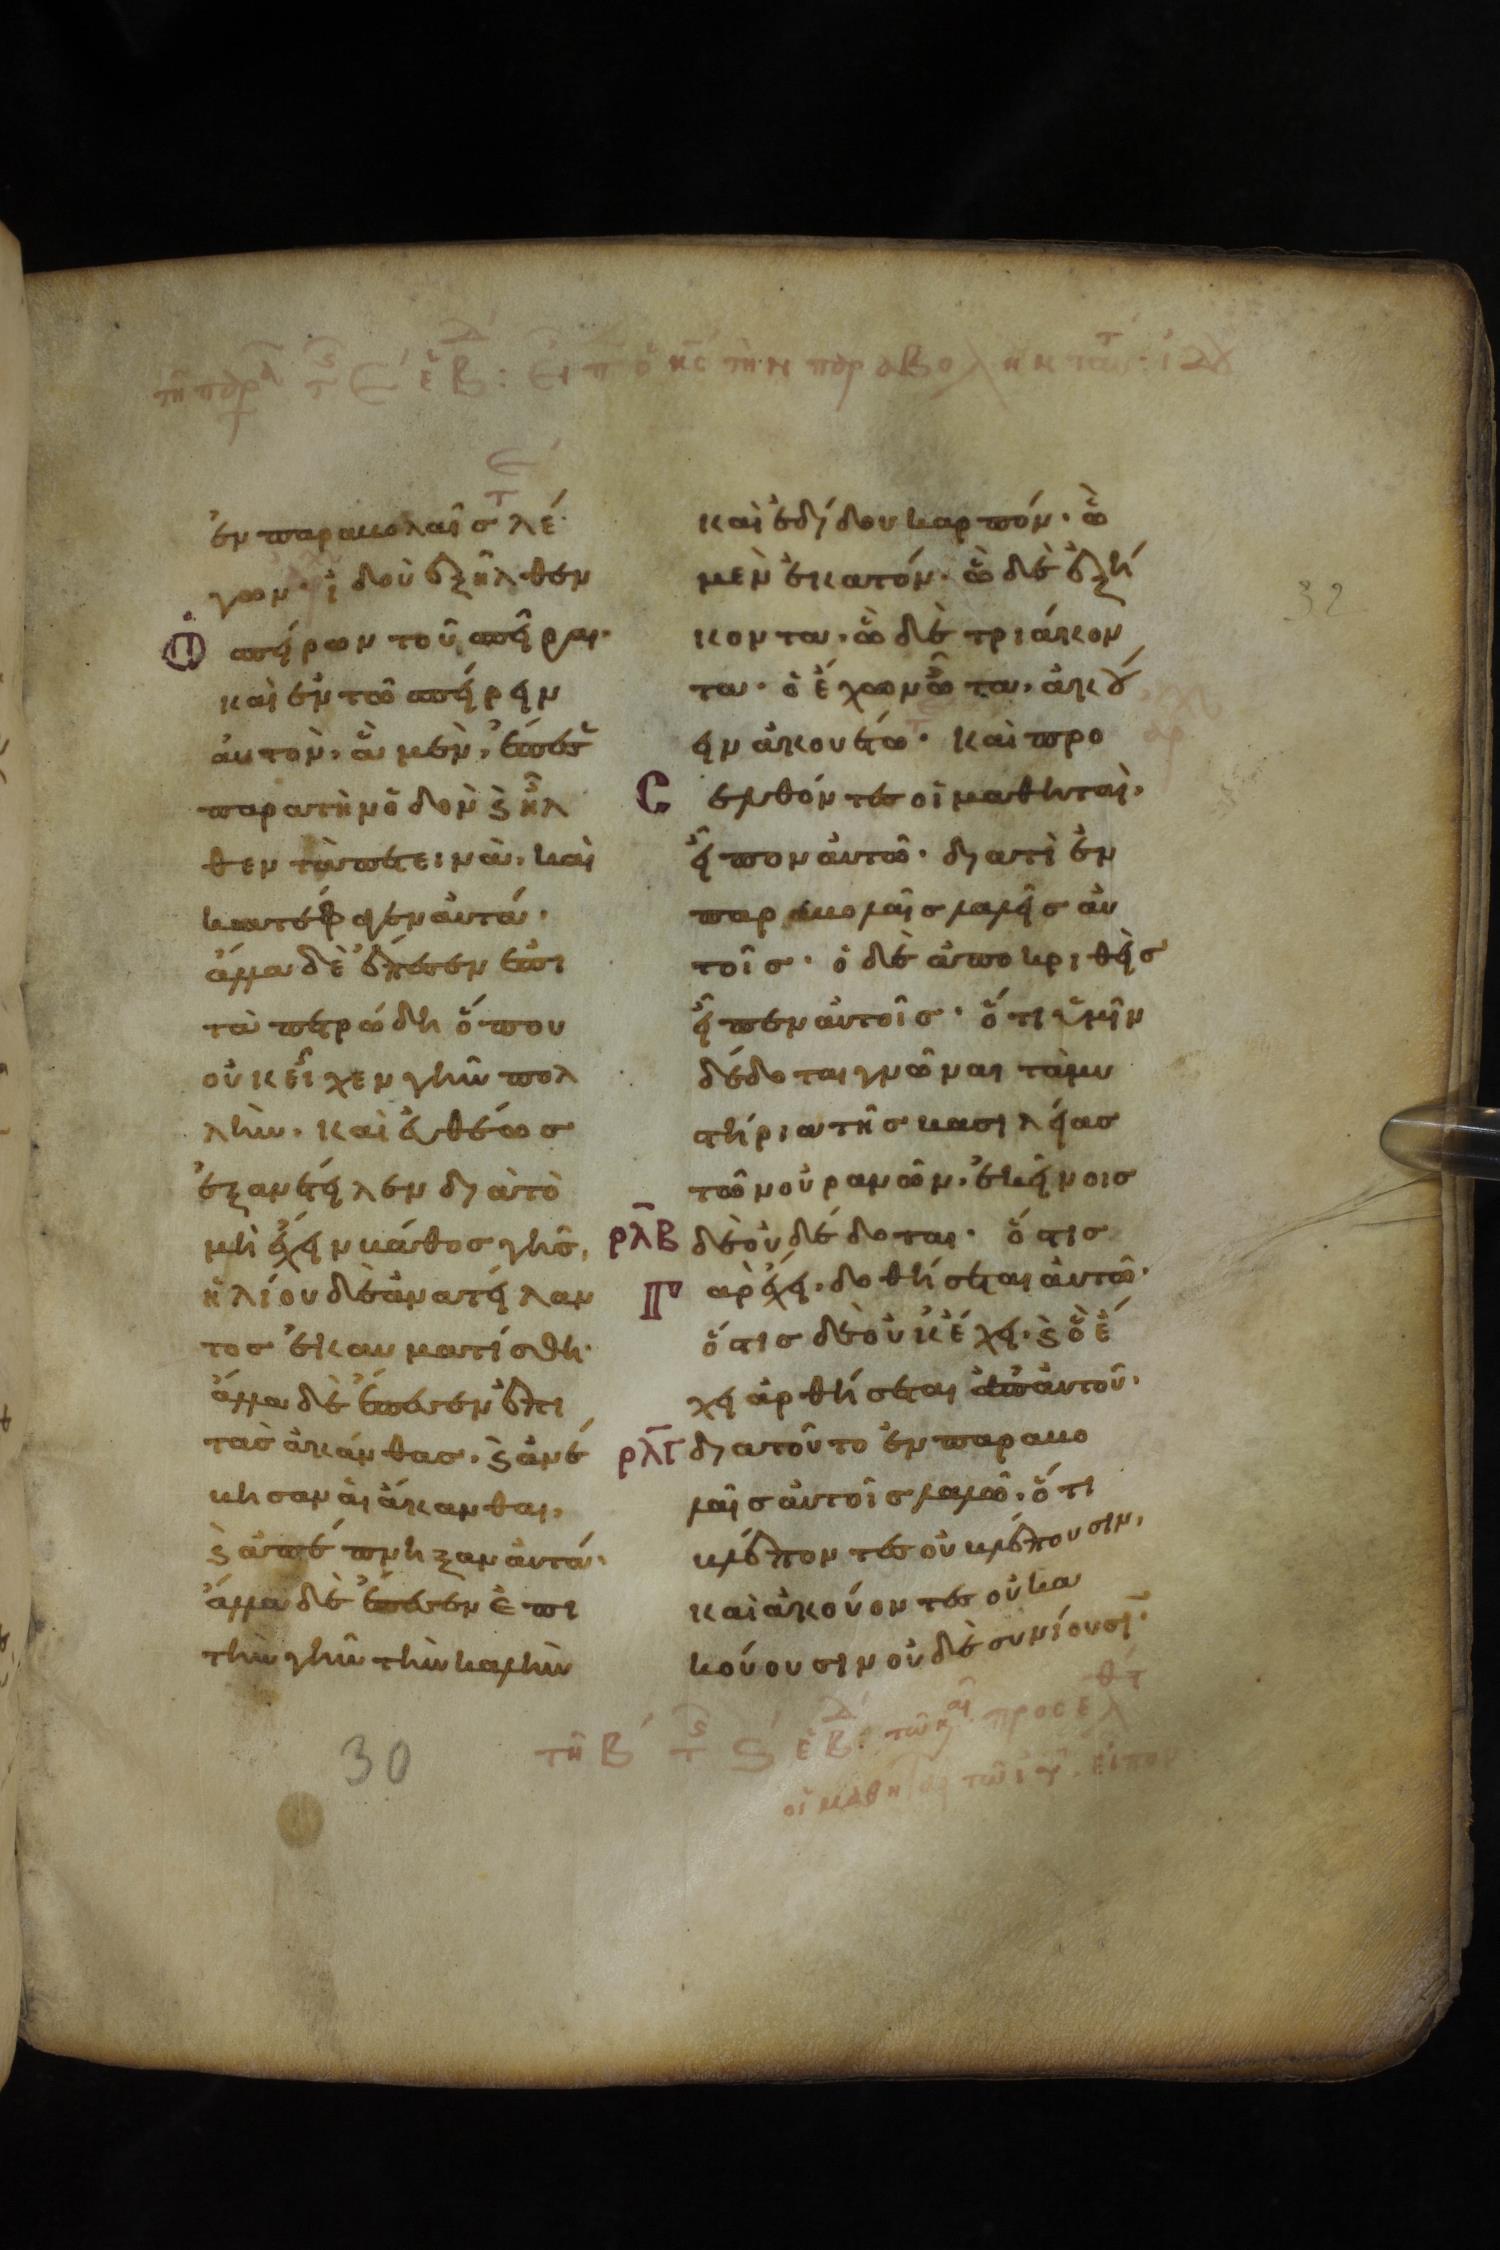 τῇ παρ τ ς Ε ἑβ: εἶπ ὁ κς τὴν παραβολὴν ταυτ· ἰδοὺ
Ε τ
ἐν παραβολαῖσ λέ
γων· ἰδοὺ ἐξῆλθεν
ὁ σπείρων τοῦ σπεῖραι·
καὶ ἐν τῶ σπείρειν
ἀυτὸν, ἃ μὲν, ἔπεσε
παρα τὴν ὁδὸν ϛ ἦλ
θεν τὰ πετεινὰ, καὶ
κατέφαγεν ἀυτά·
ἄλλα δὲ ἔπεσεν ἐπι
τὰ πετρώδη ὅπου
οὐκ εἶχεν γῆν πολ
λὴν. καὶ ἐυθέωσ
ἐξανέτειλεν δϊατὸ
μὴ ἔχειν βάθοσ γῆσ,
ἡλίου δὲ ἀνατείλαν
τοσ ἐκαυματίσθη·
ἄλλα δὲ ἔπεσεν ἐπι
τὰσ ἀκάνθασ. ϛ ἀνέ
βησαν ἁι ἄκανθαι,
ϛ ἀπέπνηξαν ἀυτά·
ἄλλα δὲ ἔπεσεν ἐπι
τὴν γῆν τὴν καλὴν
30
καὶ ἐδίδου καρπόν· ὃ
μὲν ἑκατόν· ὃ δὲ ἑξή
κοντα, ὃ δὲ τριάκον
τα· ὁ ἔχων ὦτα, ἀκού
ειν ἀκουέτω· καὶ προ
σελθόντεσ οἱ μαθηταὶ,
εἶπον ἀυτῶ· δϊατὶ ἐν
παραβολαῖσ λαλεῖσ ἀυ
τοῖσ· ὁ δὲ ἀποκριθεὶσ
εἶπεν ἀυτοῖσ· ὅτι ὑμῖν
δέδοται γνῶναι τὰ μυ
στήρια τῆσ βασιλείασ
τῶν οὐρανῶν, ἐκείνοισ
ρλβ δὲ οὐ δέδοται· ὅστισ
γαρ ἔχει, δοθήσεται ἀυτῶ·
ὅστισ δὲ οὐκ ἔχει, ϛ ὃ ἔ
χει ἀρθήσεται ἀπ' ἀυτοῦ·
ρλγ δϊατοῦτο ἐν παραβο
λαῖσ ἀυτοῖσ λαλῶ, ὅτι
βλέποντεσ οὐ βλέπουσιν,
καὶ ἀκούοντεσ οὐκα
κούουσιν οὐδὲ συνίουσῑ·
32
τῇ Β τ ς ς ἑβ: τῶ και προσελθτ
οἱ μαθηται τῶ ιυ. εἶπον